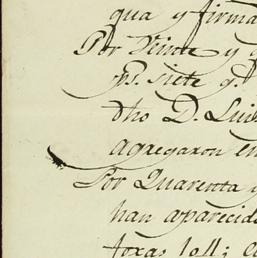 qua y firma
Por Veinte y q
ps. siete q.
dho D. Luis
agregaron en
Por Quarenta y
han aparecido
foxas 104; c